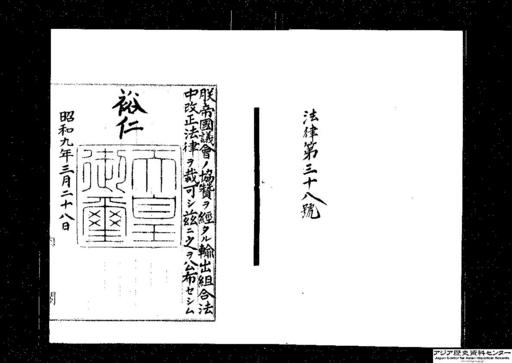 法律第三十八號
朕帝國議會ノ協贊ヲ經タル輸出組合法
中改正法律ヲ裁可シ茲ニ之ヲ公布セシム
裕仁
天皇
御璽
昭和九年三月二十八日
アジア歴史資料センター
Japan Center for Asian Historical Records